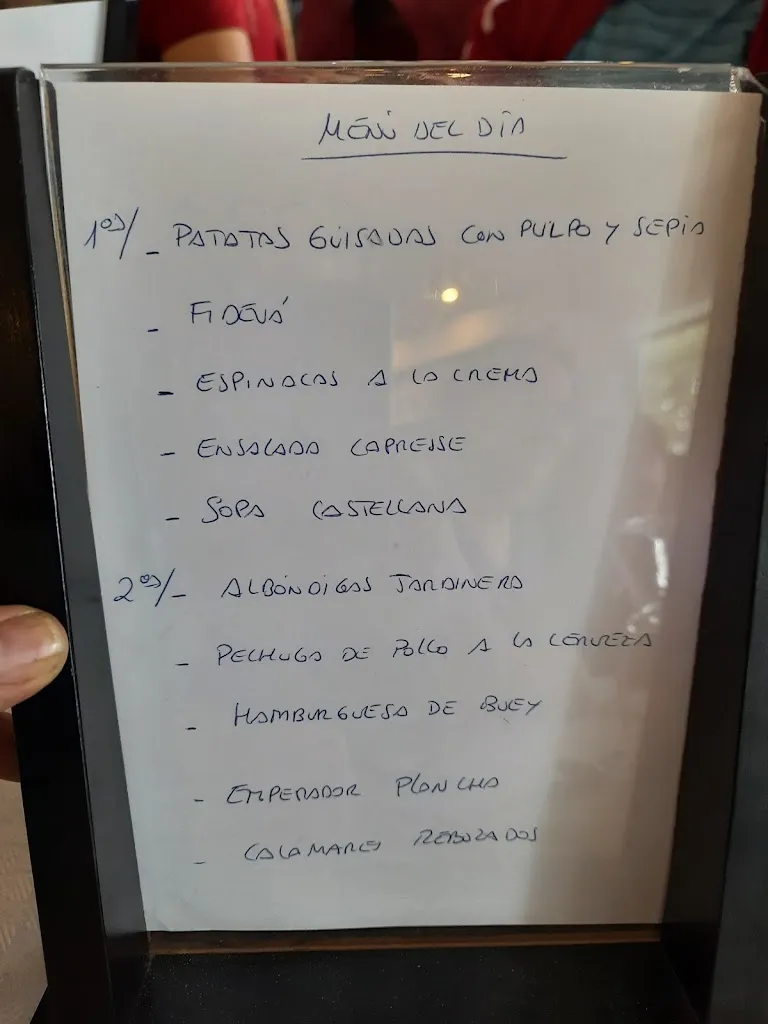 MENÚ DEL DÍA
1os/ - PATATAS GUISADAS CON PULPO Y SEPIA
- FIDEUÁ
- ESPINACAS A LA CREMA
- ENSALADA CAPRESSE
- SOPA CASTELLANA
2os/- ALBÓNDIGAS JARDINERA
- PECHUGA DE POLLO A LA CERVEZA
- HAMBURGUESA DE BUEY
- EMPERADOR PLANCHA
- CALAMARES REBOZADOS